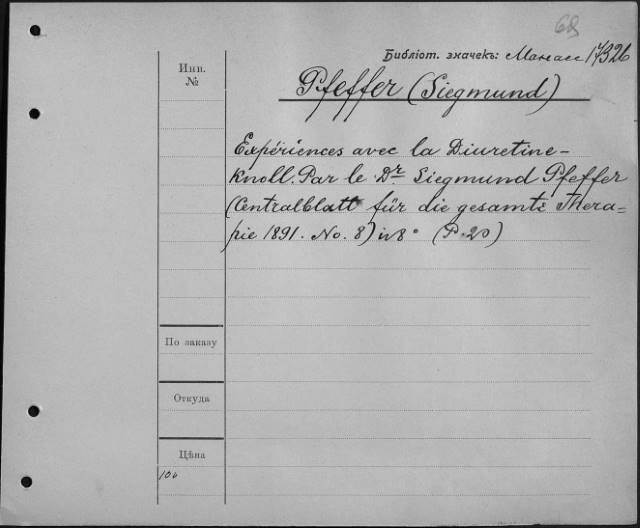 68
Библіот. значекъ: Манасс 17326
Инв.
№
Pfeffer (Siegmund)
Expériences avec la Diuretine-
Knoll. Par le Dr. Siegmund Pfeffer
(Centralblatt für die gesamte Thera=
pie 1891. No. 8) in 8° (P. 20)
По заказу
Откуда
Цѣна